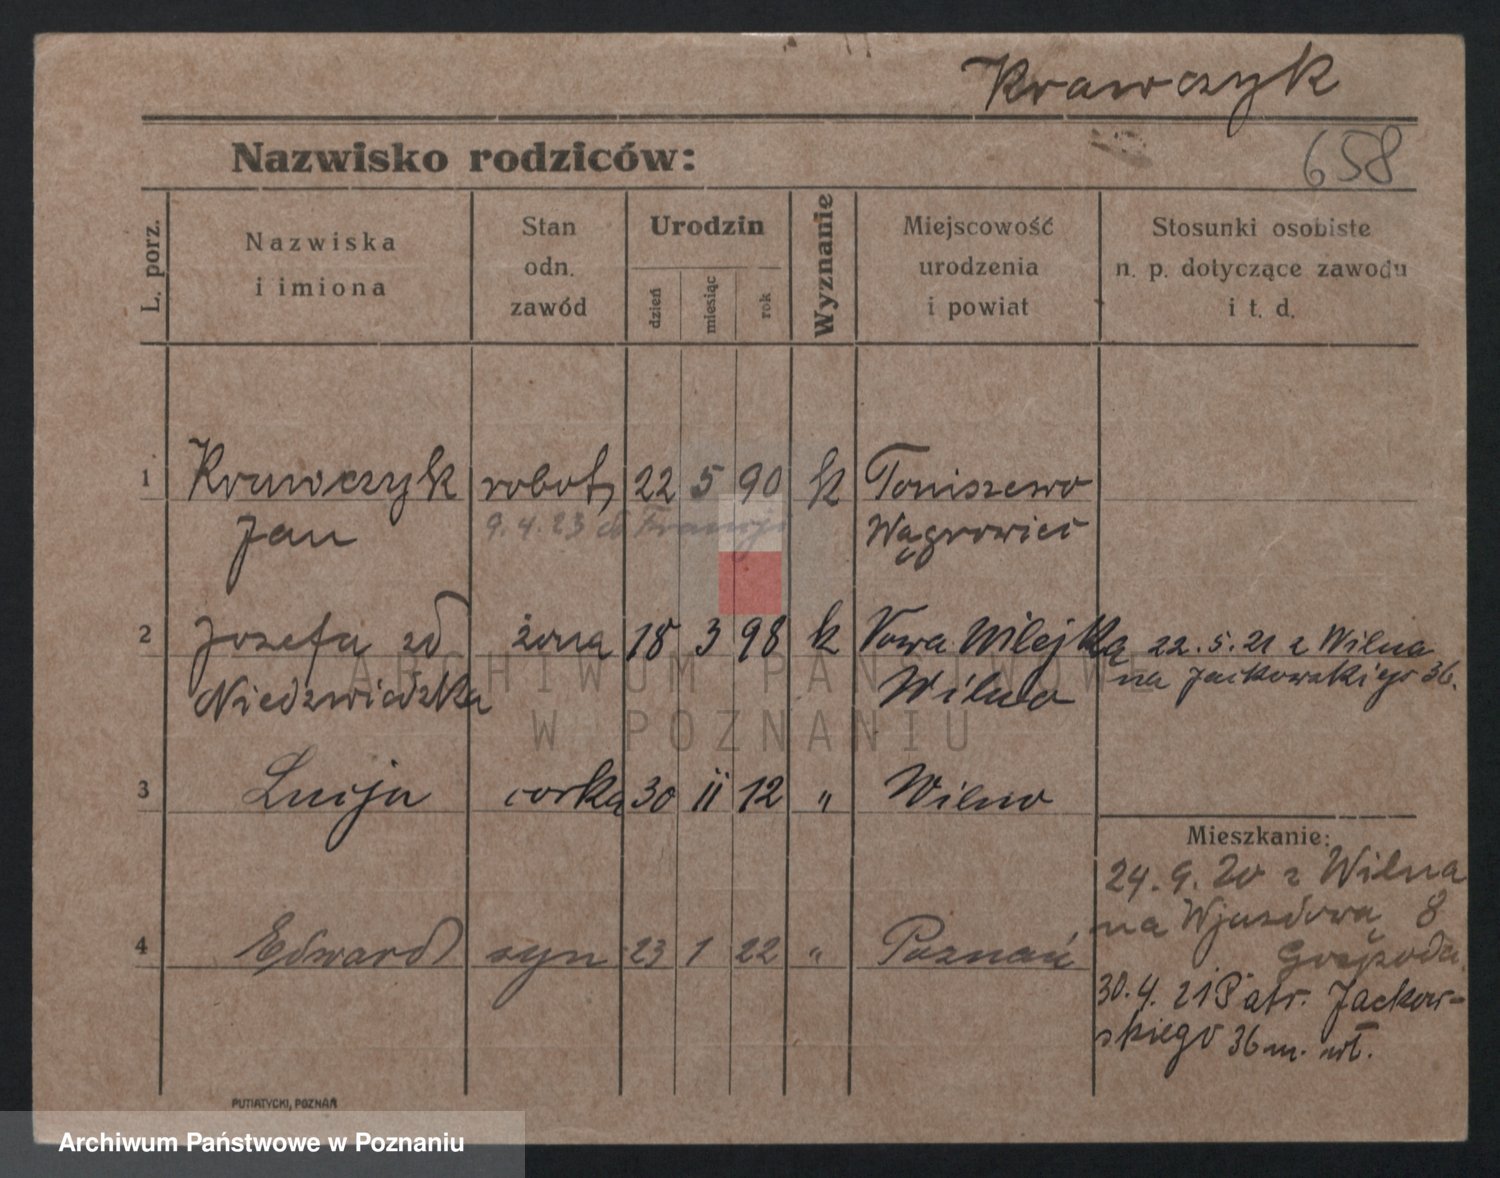 Krawczyk
Nazwisko rodziców:
658
L. porz.
Nazwiska
i imiona
Stan
odn.
zawód
Urodzin
dzień
miesiąc
rok
Wyznanie
Miejscowość
urodzenia
i powiat
Stosunki osobiste
n. p. dotyczące zawodu
i t. d.
1 Krawczyk robot, 22 5 90 k Toniszewo
Jan 9.4.23 do Francji Wągrowiec
2 Jozefa zd żona 18 3 98 k Nowa Wilejka 22.5.21 z Wilna
Niedzwiedzka Wilno na Jackowskiego 36.
3 Lucja corka 30 11 12 " Wilno
Mieszkanie:
24.9.20 z Wilna
na Wjazdową 8
Gospoda.
4 Edward syn 23 1 22 " Poznań
30.4.21 Patr. Jackow-
skiego 36 m. wł.
PUTIATYCKI, POZNAŃ
ARCHIWUM PAŃSTWOWE
W POZNANIU
Archiwum Państwowe w Poznaniu